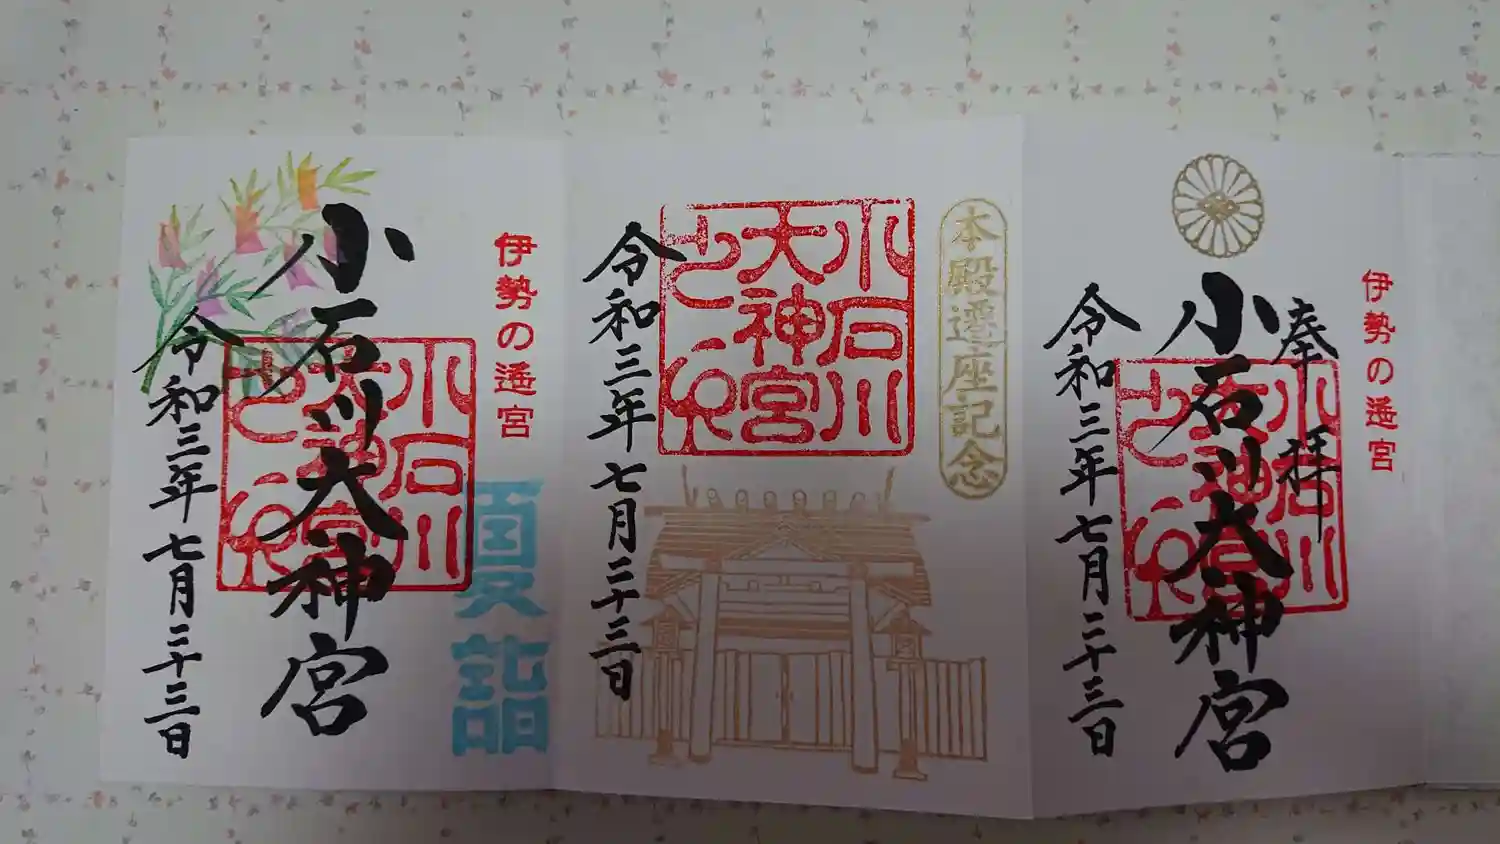 伊勢の遙宮
奉拝
小石川大神宮
小石川
大神宮
令和三年七月二十三日
本殿遷座記念
小石川
大神宮
令和三年七月二十三日
伊勢の遙宮
夏詣
小石川大神宮
小石川
大神宮
令和三年七月二十三日